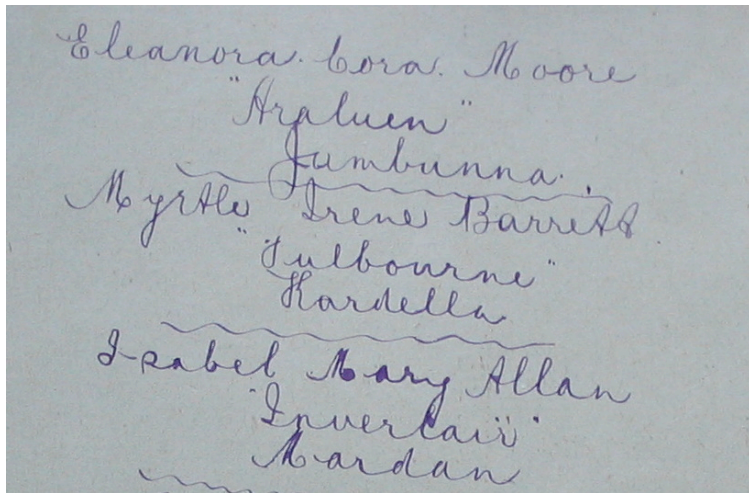 Eleanora. Cora. Moore
"Araluen"
Jumbunna.
Myrtle Irene Barrett
"Fulbourne"
Kardella
Isabel Mary Allan
"Inverlair"
Mardan